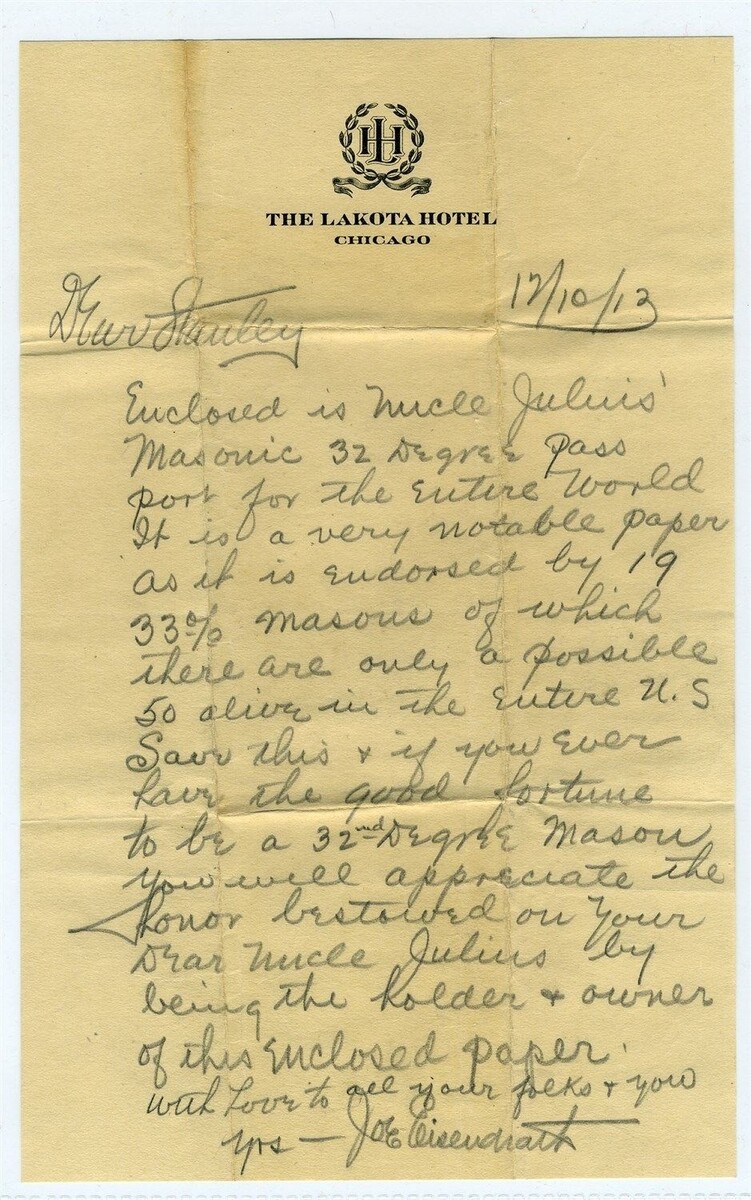 LH
THE LAKOTA HOTEL
CHICAGO
12/10/13
Dear Stanley
Enclosed is Uncle Julius'
Masonic 32 Degree pass
port for the Entire World
It is a very notable paper
as it is endorsed by 19
33% Masons of which
there are only a possible
50 alive in the Entire U.S
Save this & if you Ever
have the good fortune
to be a 32nd Degree Mason
you will appreciate the
honor bestowed on your
Dear Uncle Julius by
being the holder & owner
of this Enclosed paper.
with Love to all your folks & you
Yrs — Joe Eisendrath